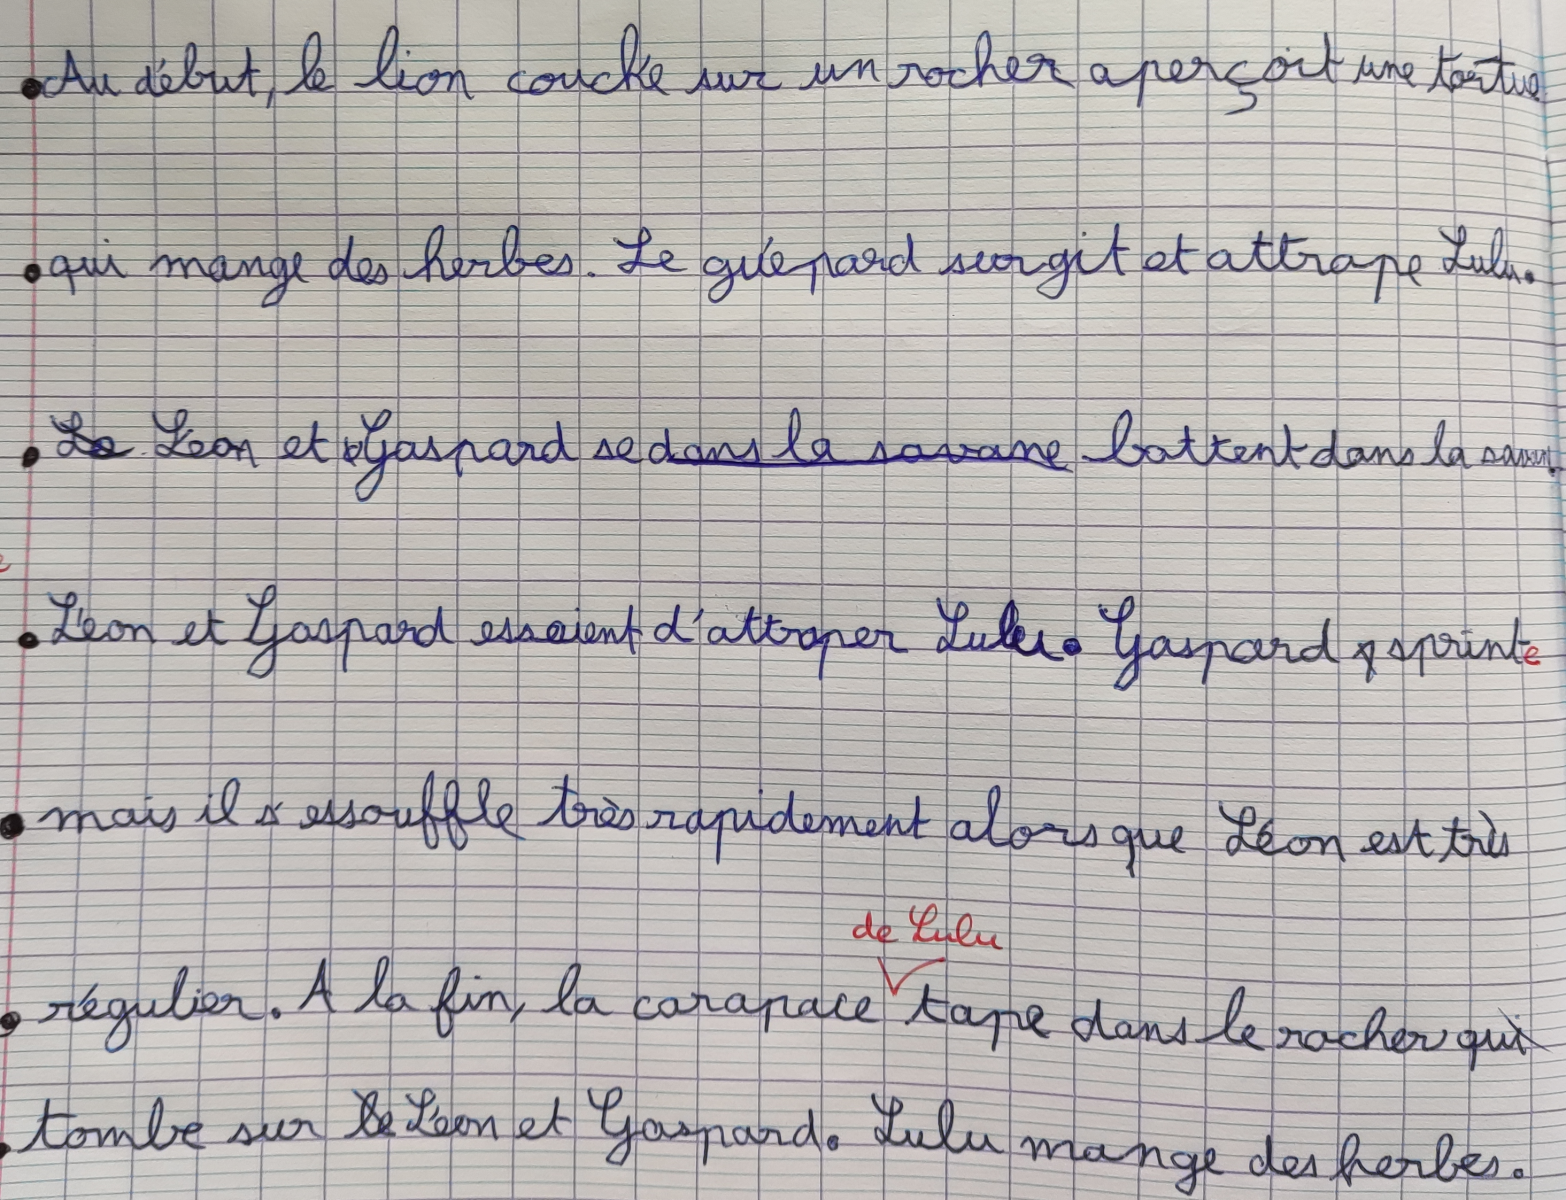 Au début, le lion couché sur un rocher aperçoit une tortue
qui mange des herbes. Le guépard surgit et attrape Lulu.
Le Léon et Gaspard se dans la savane battent dans la savane
Léon et Gaspard essaient d'attraper Lulu. Gaspard sprinte
mais il s'essouffle très rapidement alors que Léon est très
de Lulu
régulier. A la fin, la carapace tape dans le rocher qui
tombe sur le Léon et Gaspard. Lulu mange des herbes.